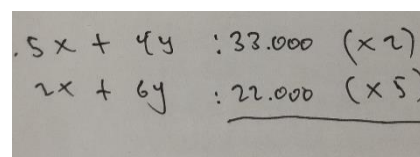 . 5x + 4y : 33.000 (x2)
2x + 6y : 22.000 (x5)